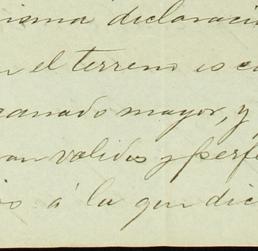 isma declaració
n el terreno es ca
ganado mayor, y
an validos y perfe
io á la que dic